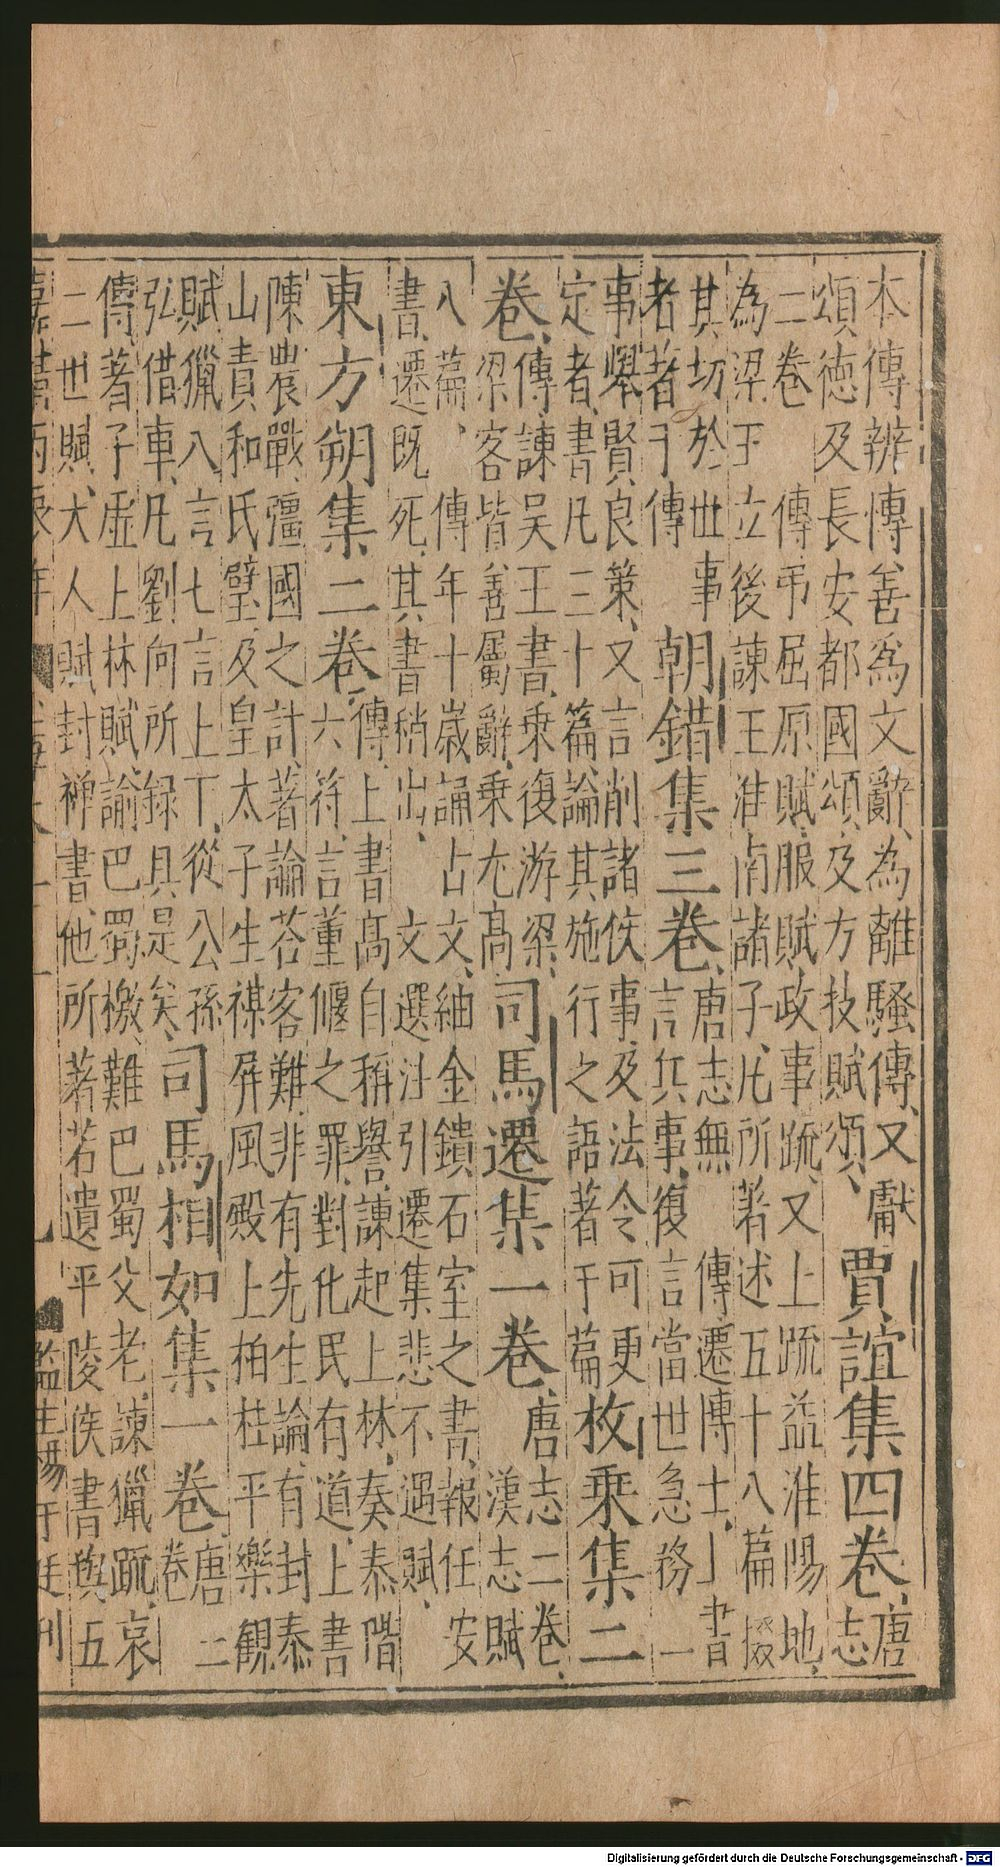 本傳辨傳善為文辭為離騷傳又獻
頌德及長安都國頌及方技賦頌
賈誼集四卷
唐
志
二卷 傳弔屈原賦服賦政事疏又上疏益淮陽地
為梁王立後諫王淮南諸子凡所著述五十八篇掇
其切於世事
者著于傳
朝錯集三卷
唐志無 傳遷博士上書
言兵事復言當世急務一
事舉賢良策又言削諸侯事及法令可更
定者書凡三十篇論其施行之語著于篇
枚乘集二
卷
傳諫吳王書乘復游梁
梁客皆善屬辭乘尤高
司馬遷集一卷
唐志二卷
漢志賦
八篇 傳年十歲誦古文紬金鐀石室之書報任安
書遷既死其書稍出 文選注引遷集悲不遇賦
東方朔集二卷
傳上書高自稱譽諫起上林奏泰階
六符言董偃之罪對化民有道上書
陳農戰彊國之計著論荅客難非有先生論有封泰
山責和氏璧及皇太子生禖屏風殿上柏柱平樂觀
賦獵八言七言上下從公孫
弘借車凡劉向所録具是矣
司馬相如集一卷
唐二
卷
傳著子虛上林賦諭巴蜀檄難巴蜀父老諫獵疏哀
二世賦大人賦封禪書他所著若遺平陵侯書與五
Digitalisierung gefördert durch die Deutsche Forschungsgemeinschaft - DFG